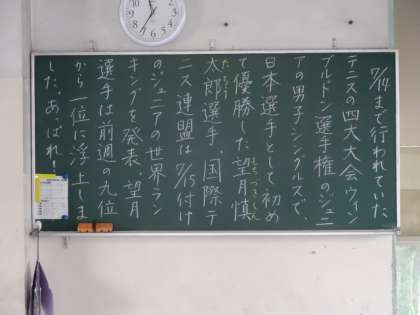 7/14まで行われていた、
テニスの四大大会、ウィン
ブルドン選手権のジュニ
アの男子シングルスで、
日本選手として初め
て優勝した望月慎
もちづきしん
太郎選手。国際テ
たろう
ニス連盟は7/15付け
のジュニアの世界ラン
キングを発表、望月
選手は前週の九位
から一位に浮上しま
した。あっぱれ!